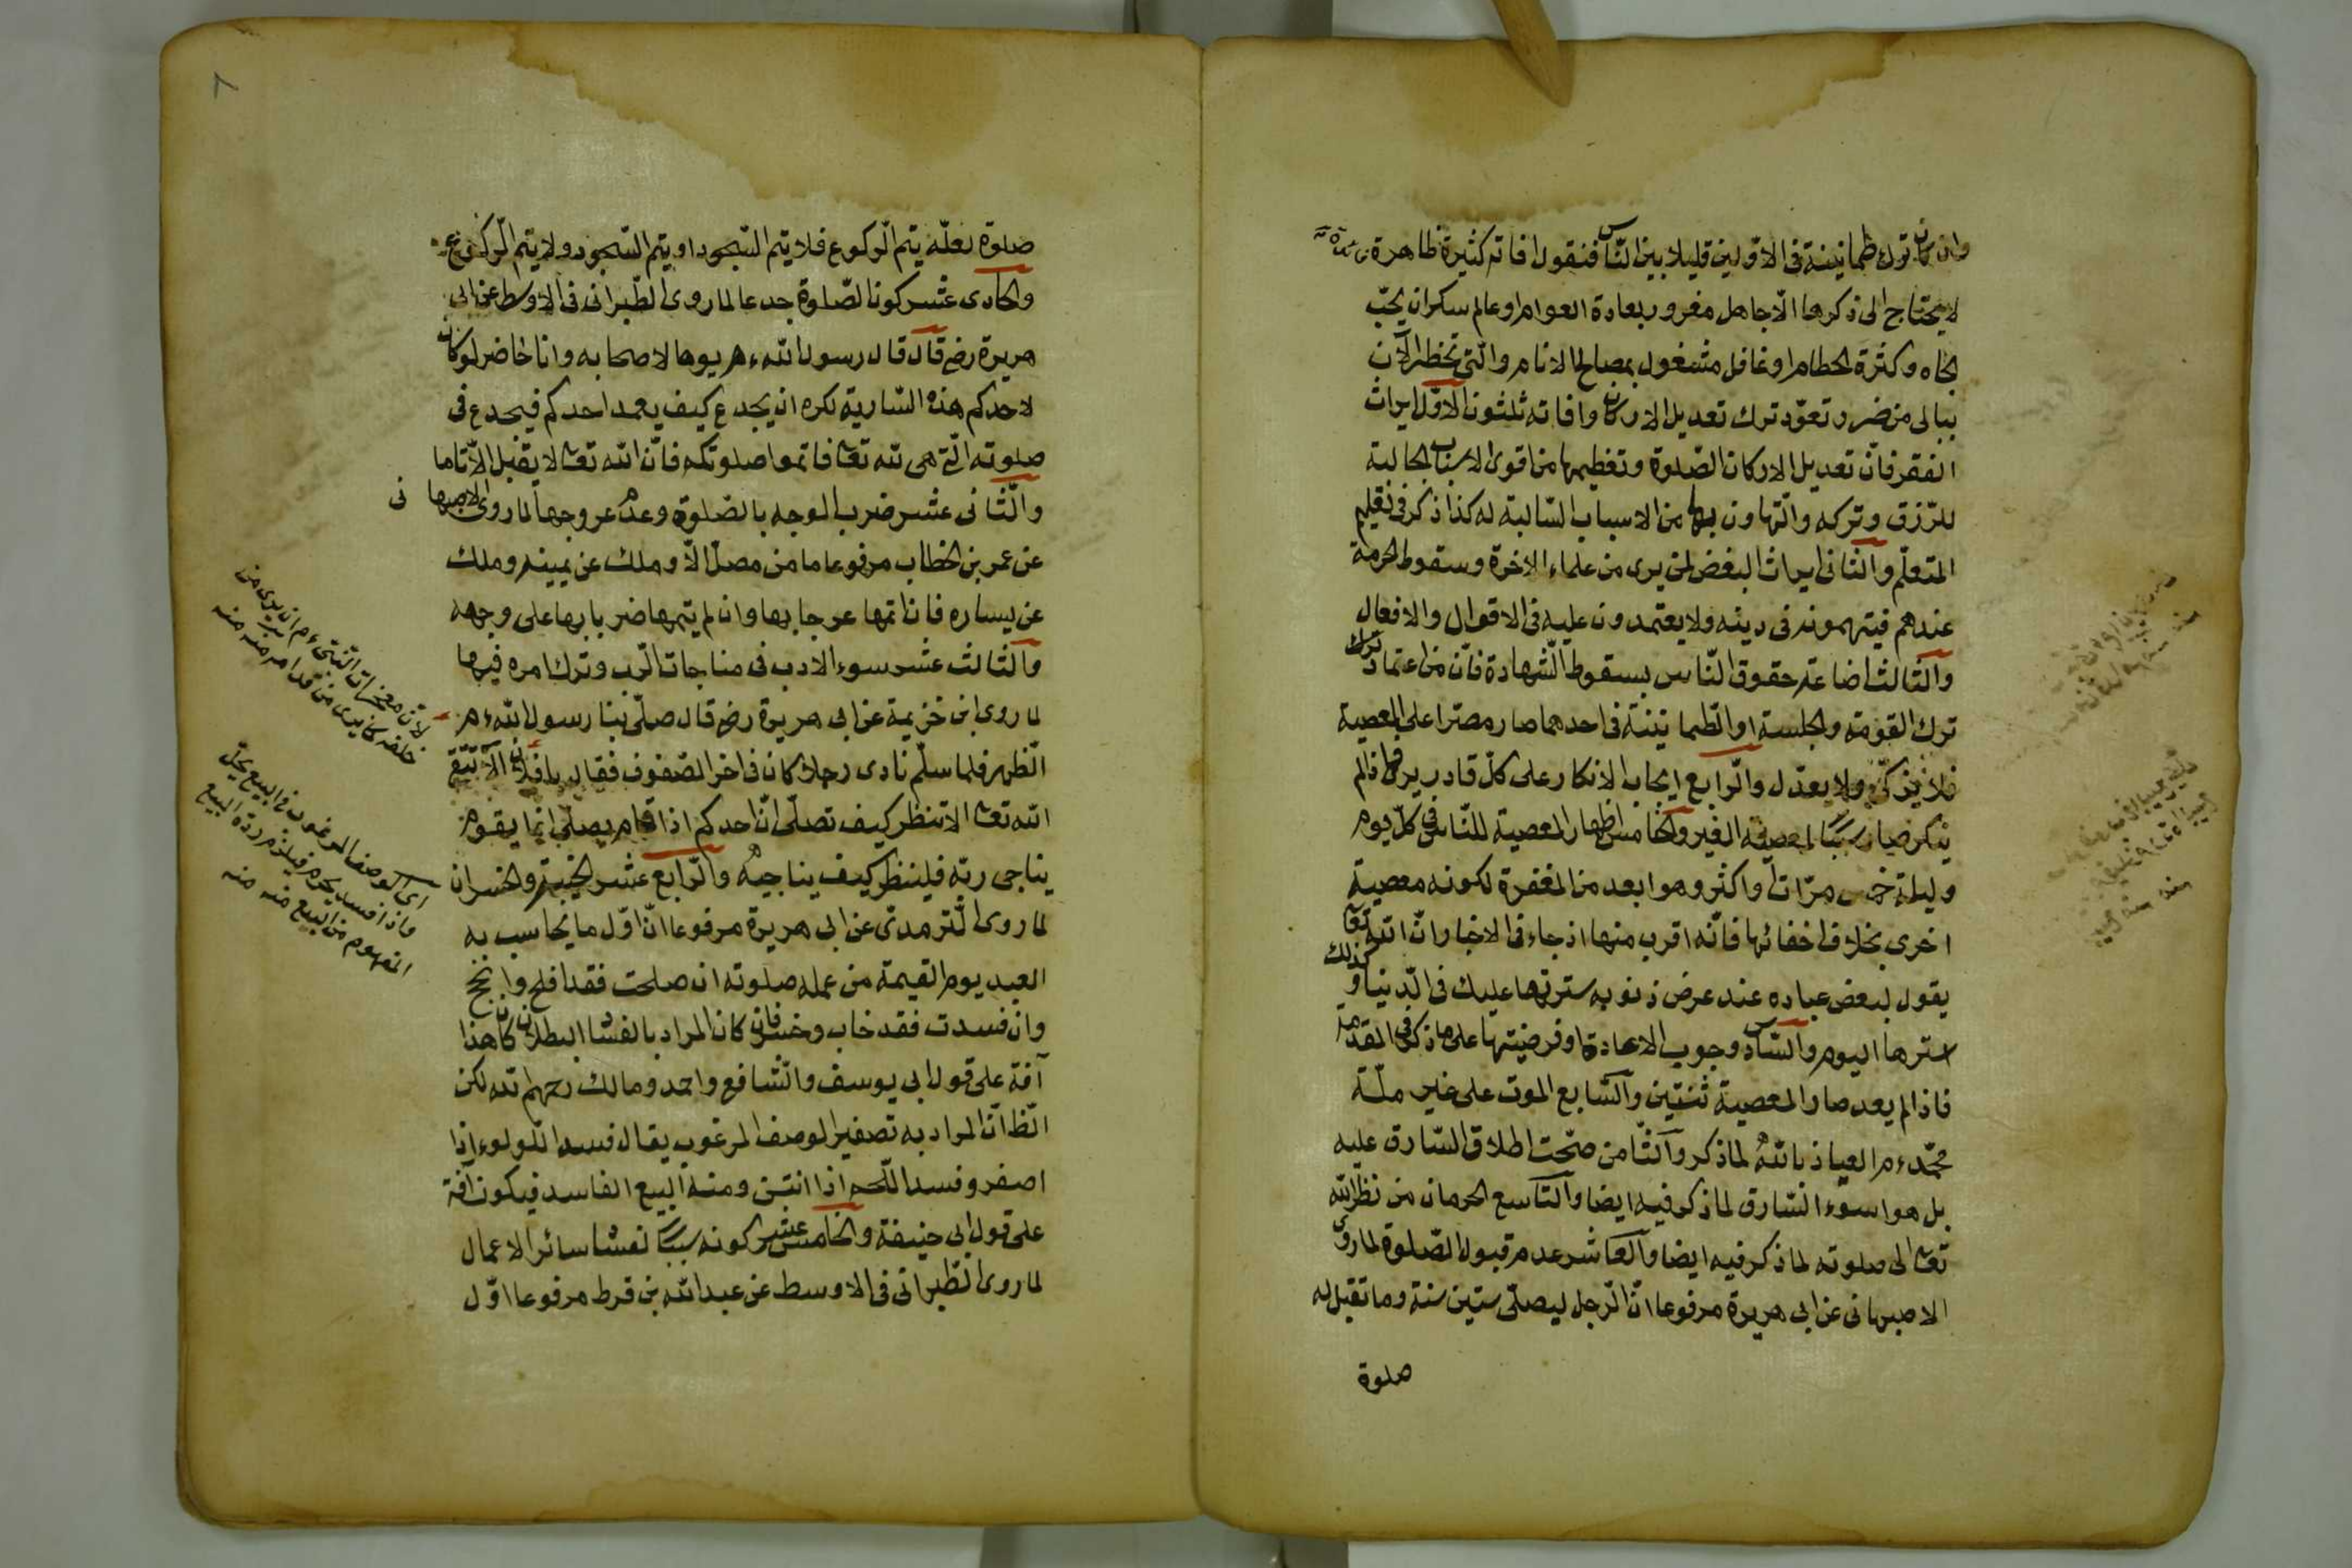 وان كان ترك طمانينة فى الاولين قليلا بين الناس فنقول افاته كثيرة ظاهرة
لا يحتاج الى ذكرها الّا جاهل مغرور بعادة العوام او عالم سكران بحبّ
الجاه وكثرة الحطام او غافل مشغول بمصالح الانام والّتى تخطر الآن
ببالى من ضرر تعوّد ترك تعديل الاركان وافاته ثلثون الاوّل ايراث
الفقر فانّ تعديل الاركان الصّلوة وتعظيمها من اقوى الاسباب الجالبة
للرّزق وتركه والتّهاون بها من الاسباب السّالبة له كذا ذكر فى تعليم
المتعلّم والثّانى ايراث البغض لمن يرى من علماء الاخرة وسقوط الحرمة
عندهم فيتهمونه فى دينه ولا يعتمدون عليه فى الاقوال والافعال
والثّالث اضاعة حقوق النّاس بسقوط الشّهادة فانّ من اعتاد ترك
ترك القومة والجلسة او الطّمانينة فى احدهما صار مصرّا على المعصية
فلا يزكّى ولا يعدّل والرّابع ايجاب الانكار على كلّ قادر يرى فاذا لم
ينكر صار سببا لمعصية الغير والخامس اظهار المعصية للنّاس فى كلّ يوم
وليلة خمس مرّات او اكثر وهو ابعد من المغفرة لكونه معصية
اخرى بخلاف اخفائها فانّه اقرب منها اذ جاء فى الاخبار انّ اللّه تعا
يقول لبعض عباده عند عرض ذنوبه سترتها عليك فى الدّنيا وكذلك
استرها اليوم والسّادس وجوب الاعادة او فرضيتها على ما ذكر فى المقدمة
فاذا لم يعد صار المعصية ثنتين والسّابع الموت على غير ملّة
محمّد ءم العياذ باللّه لما ذكر والثّامن صحّت اطلاق السّارق عليه
بل هو اسوء السّارق لما ذكر فيه ايضا والتّاسع الحرمان من نظر اللّه
تعا الى صلوته لما ذكر فيه ايضا والعاشر عدم قبول الصّلوة لما روى
الاصبهانى عن ابى هريرة مرفوعا انّ الرّجل ليصلّى ستين سنة وما تقبل له
صلوة
٨
صلوة لعلّه يتم الرّكوع فلا يتم السّجود او يتم السّجود ولا يتم الرّكوع
والحادى عشر كون الصّلوة جدعا لما روى الطّبرانى فى الاوسط عن ابى
هريرة رض قال قال رسول اللّه ءم يوما لاصحابه وانا حاضر لو كان
لاحدكم هذه السّارية لكره ان يجدع كيف يعمد احدكم فيجدع فى
صلوته الّتى هى للّه تعا فاتموا صلوتكم فانّ اللّه تعا لا يقبل الّا تاما
والثّانى عشر ضرب الوجه بالصّلوة وعدم عروجها لما روى الاصبهانى
عن عمر بن الخطاب مرفوعا ما من مصلّ الّا وملك عن يمينه وملك
عن يساره فان اتمها عرجا بها وان لم يتمها ضربا بها على وجهه
والثّالث عشر سوء الادب فى مناجات الرّب وترك امره فيها
لما روى ابن خزيمة عن ابى هريرة رض قال صلّى بنا رسول اللّه ءم
الظّهر فلما سلّم نادى رجلا كان فى اخر الصّفوف فقال يا فلان الا تتّقى
اللّه تعا الا تنظر كيف تصلّى انّ احدكم اذا قام يصلّى انما يقوم
يناجى ربّه فلينظر كيف يناجيه والرّابع عشر الخيبة والخسران
لما روى التّرمذىّ عن ابى هريرة مرفوعا انّ اوّل ما يحاسب به
العبد يوم القيمة من عمله صلوته ان صلحت فقد افلح وانجح
وان فسدت فقد خاب وخسر فان كان المراد بالفساد البطلان كان هذا
آفة على قول ابى يوسف والشّافع واحمد ومالك رحمهم اللّه لكن
الظّ انّ المراد به تصغير الوصف المرغوب يقال فسد اللّولوء اذا
اصفر وفسد اللّحم اذا انتن ومنه البيع الفاسد فيكون آفة
على قول ابى حنيفة والخامس عشر كونه سببا لفساد سائر الاعمال
لما روى الطّبرانى فى الاوسط عن عبد اللّه بن قرط مرفوعا اوّل
لانّ معجزات النّبىّ ءم ان يرى من
خلفه كما يرى من قدامه منه
اى الوصف المرغوب فى البيع يحلّ
واذا فسد يحرم فيلزم ردّه البيع
المفهوم من البيع منه